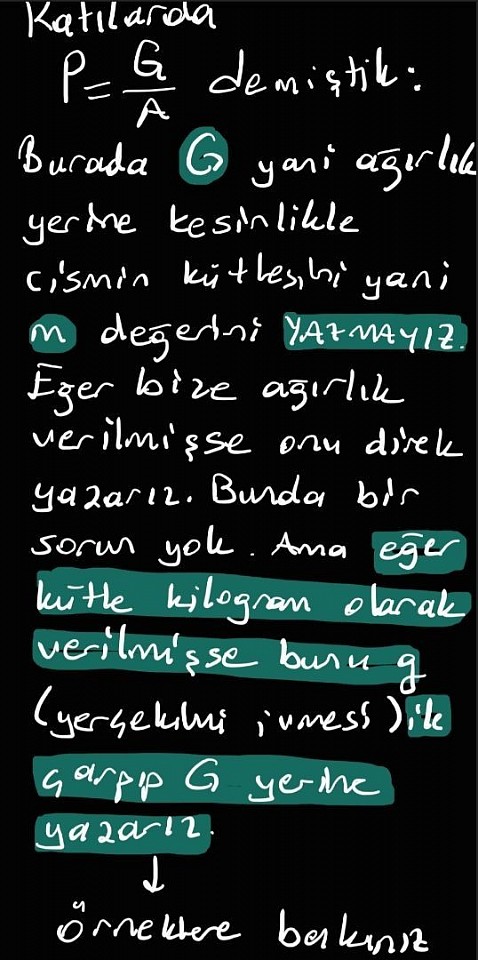 Katılarda
P = G/A demiştik:
Burada G yani ağırlık
yerine kesinlikle
cismin kütlesini yani
m değerini YAZMAYIZ.
Eğer bize ağırlık
verilmişse onu direk
yazarız. Bunda bir
sorun yok. Ama eğer
kütle kilogram olarak
verilmişse bunu g
(yerçekimi ivmesi) ile
çarpıp G yerine
yazarız.
↓
örneklere bakınız